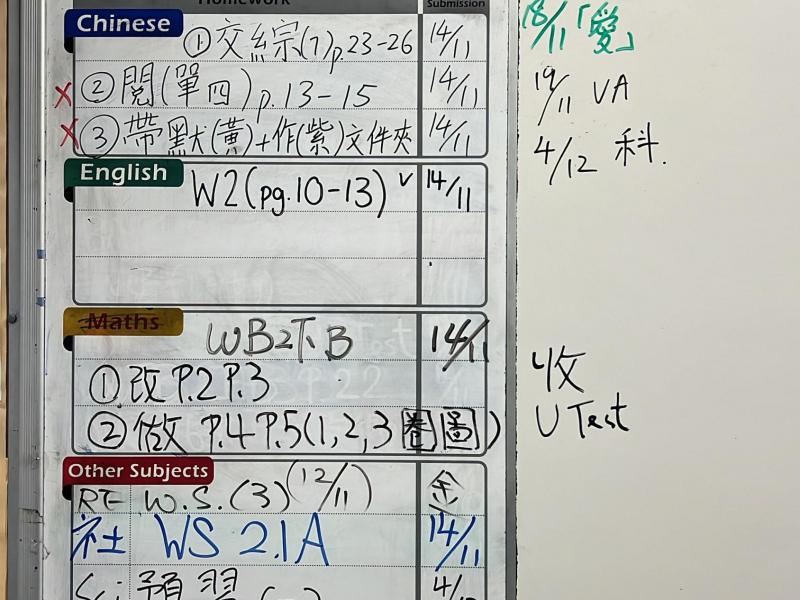 Homework Submission
Chinese
①交綜(7)p.23-26 14/11
X ②閱(單四)p.13-15 14/11
X ③帶默(黃)+作(紫)文件夾 14/11
English
W2(pg.10-13) ✓ 14/11
Maths
WB2下B 14/11
①改 P.2 P.3
②做 P.4 P.5(1,2,3圈圖)
Other Subjects
RE W.S.(3)(12/11) 金
社 WS 2.1A 14/11
Sci 預習
18/11「愛」
19/11 VA
4/12 科.
收
U Test